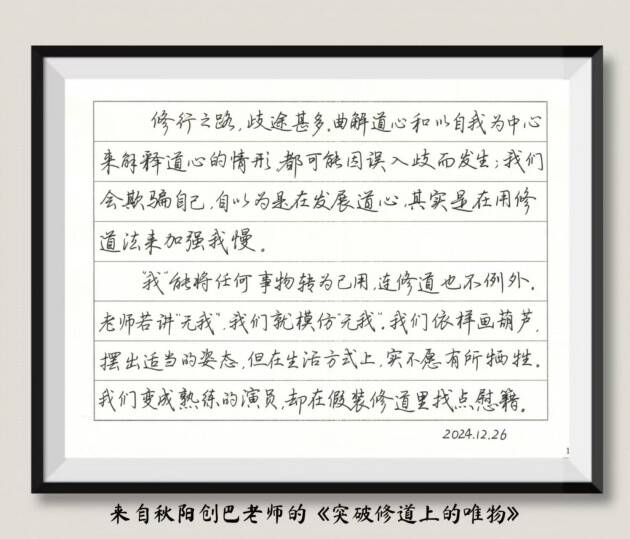 修行之路，歧途甚多。曲解道心和以自我为中心
来解释道心的情形，都可能因误入歧而发生；我们
会欺骗自己，自以为是在发展道心，其实是在用修
道法来加强我慢。
“我”能将任何事物转为己用，连修道也不例外。
老师若讲“无我”，我们就模仿“无我”。我们依样画葫芦，
摆出适当的姿态，但在生活方式上，实不愿有所牺牲。
我们变成熟练的演员，却在假装修道里找点慰籍。
2024.12.26
1
来自秋阳创巴老师的《突破修道上的唯物》